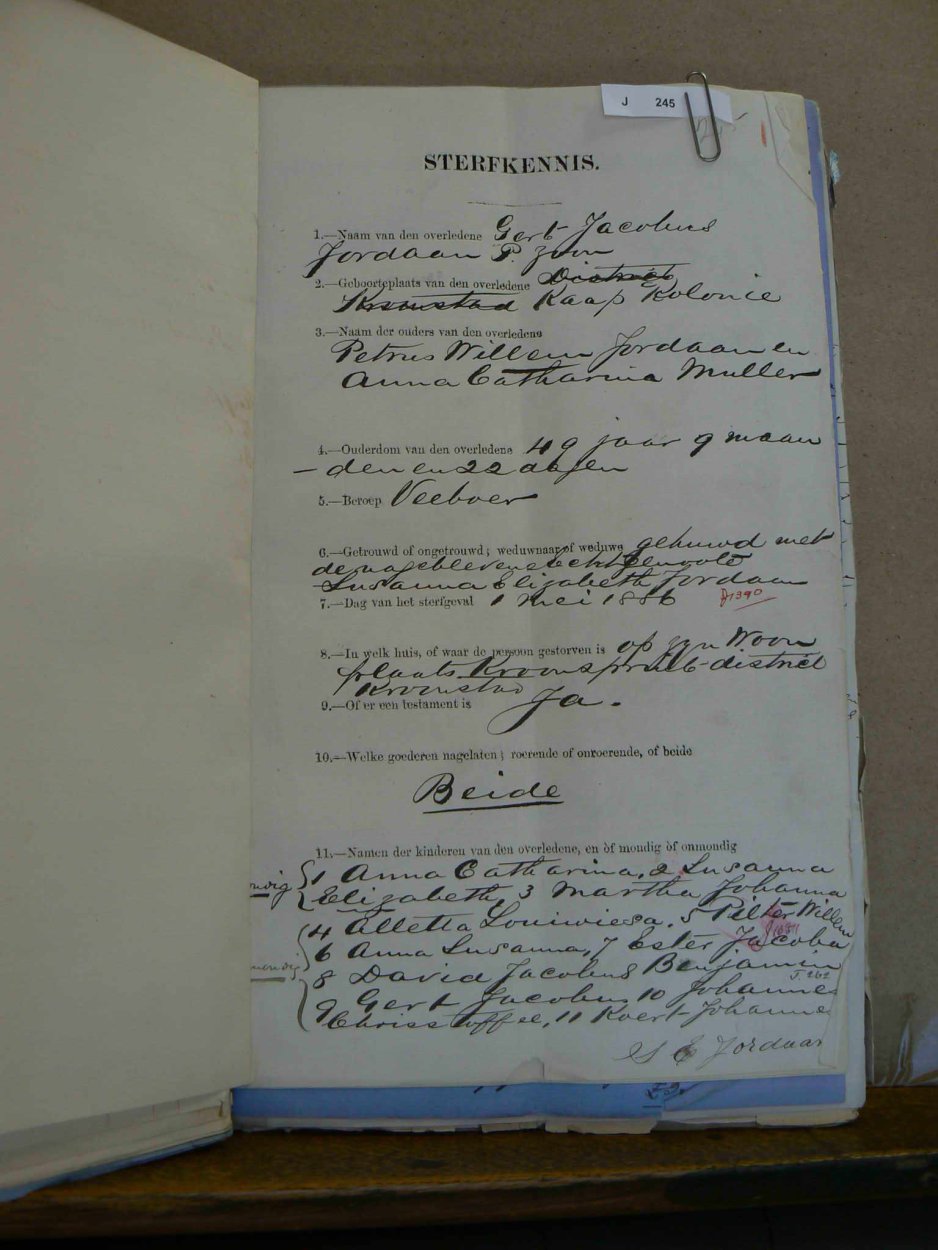 J 245
STERFKENNIS.
1.—Naam van den overledene Gert Jacobus
Jordaan P. zoon
2.—Geboorteplaats van den overledene District
Kroonstad Kaap Kolonie
3.—Naam der ouders van den overledene
Petrus Willem Jordaan en
Anna Catharina Muller
4.—Ouderdom van den overledene 49 jaar 9 maan
—den en 22 dagen
5.—Beroep Veeboer
6.—Getrouwd of ongetrouwd; weduwnaar of weduwe gehuwd met
de nageblevene Echtgenoote
Susanna Elizabeth Jordaan
7.—Dag van het sterfgeval 1 Mei 1886 J1390
8.—In welk huis, of waar de persoon gestorven is op zyn Woon
plaats Kroonspruit district
Kroonstad
9.—Of er een testament is Ja.
10.—Welke goederen nagelaten; roerende of onroerende, of beide
Beide
11.—Namen der kinderen van den overledene, en òf mondig òf onmondig
1 Anna Catharina, 2 Susanna
Elizabeth, 3 Martha Johanna
4 Alletta Louiwiesa, 5 Pitter Willem
6 Anna Susanna, 7 Ester Jacoba
8 David Jacobus Benjamin
J.262
9 Gert Jacobus 10 Johannes
Chrisstoffee, 11 Koert Johannes
S E Jordaan